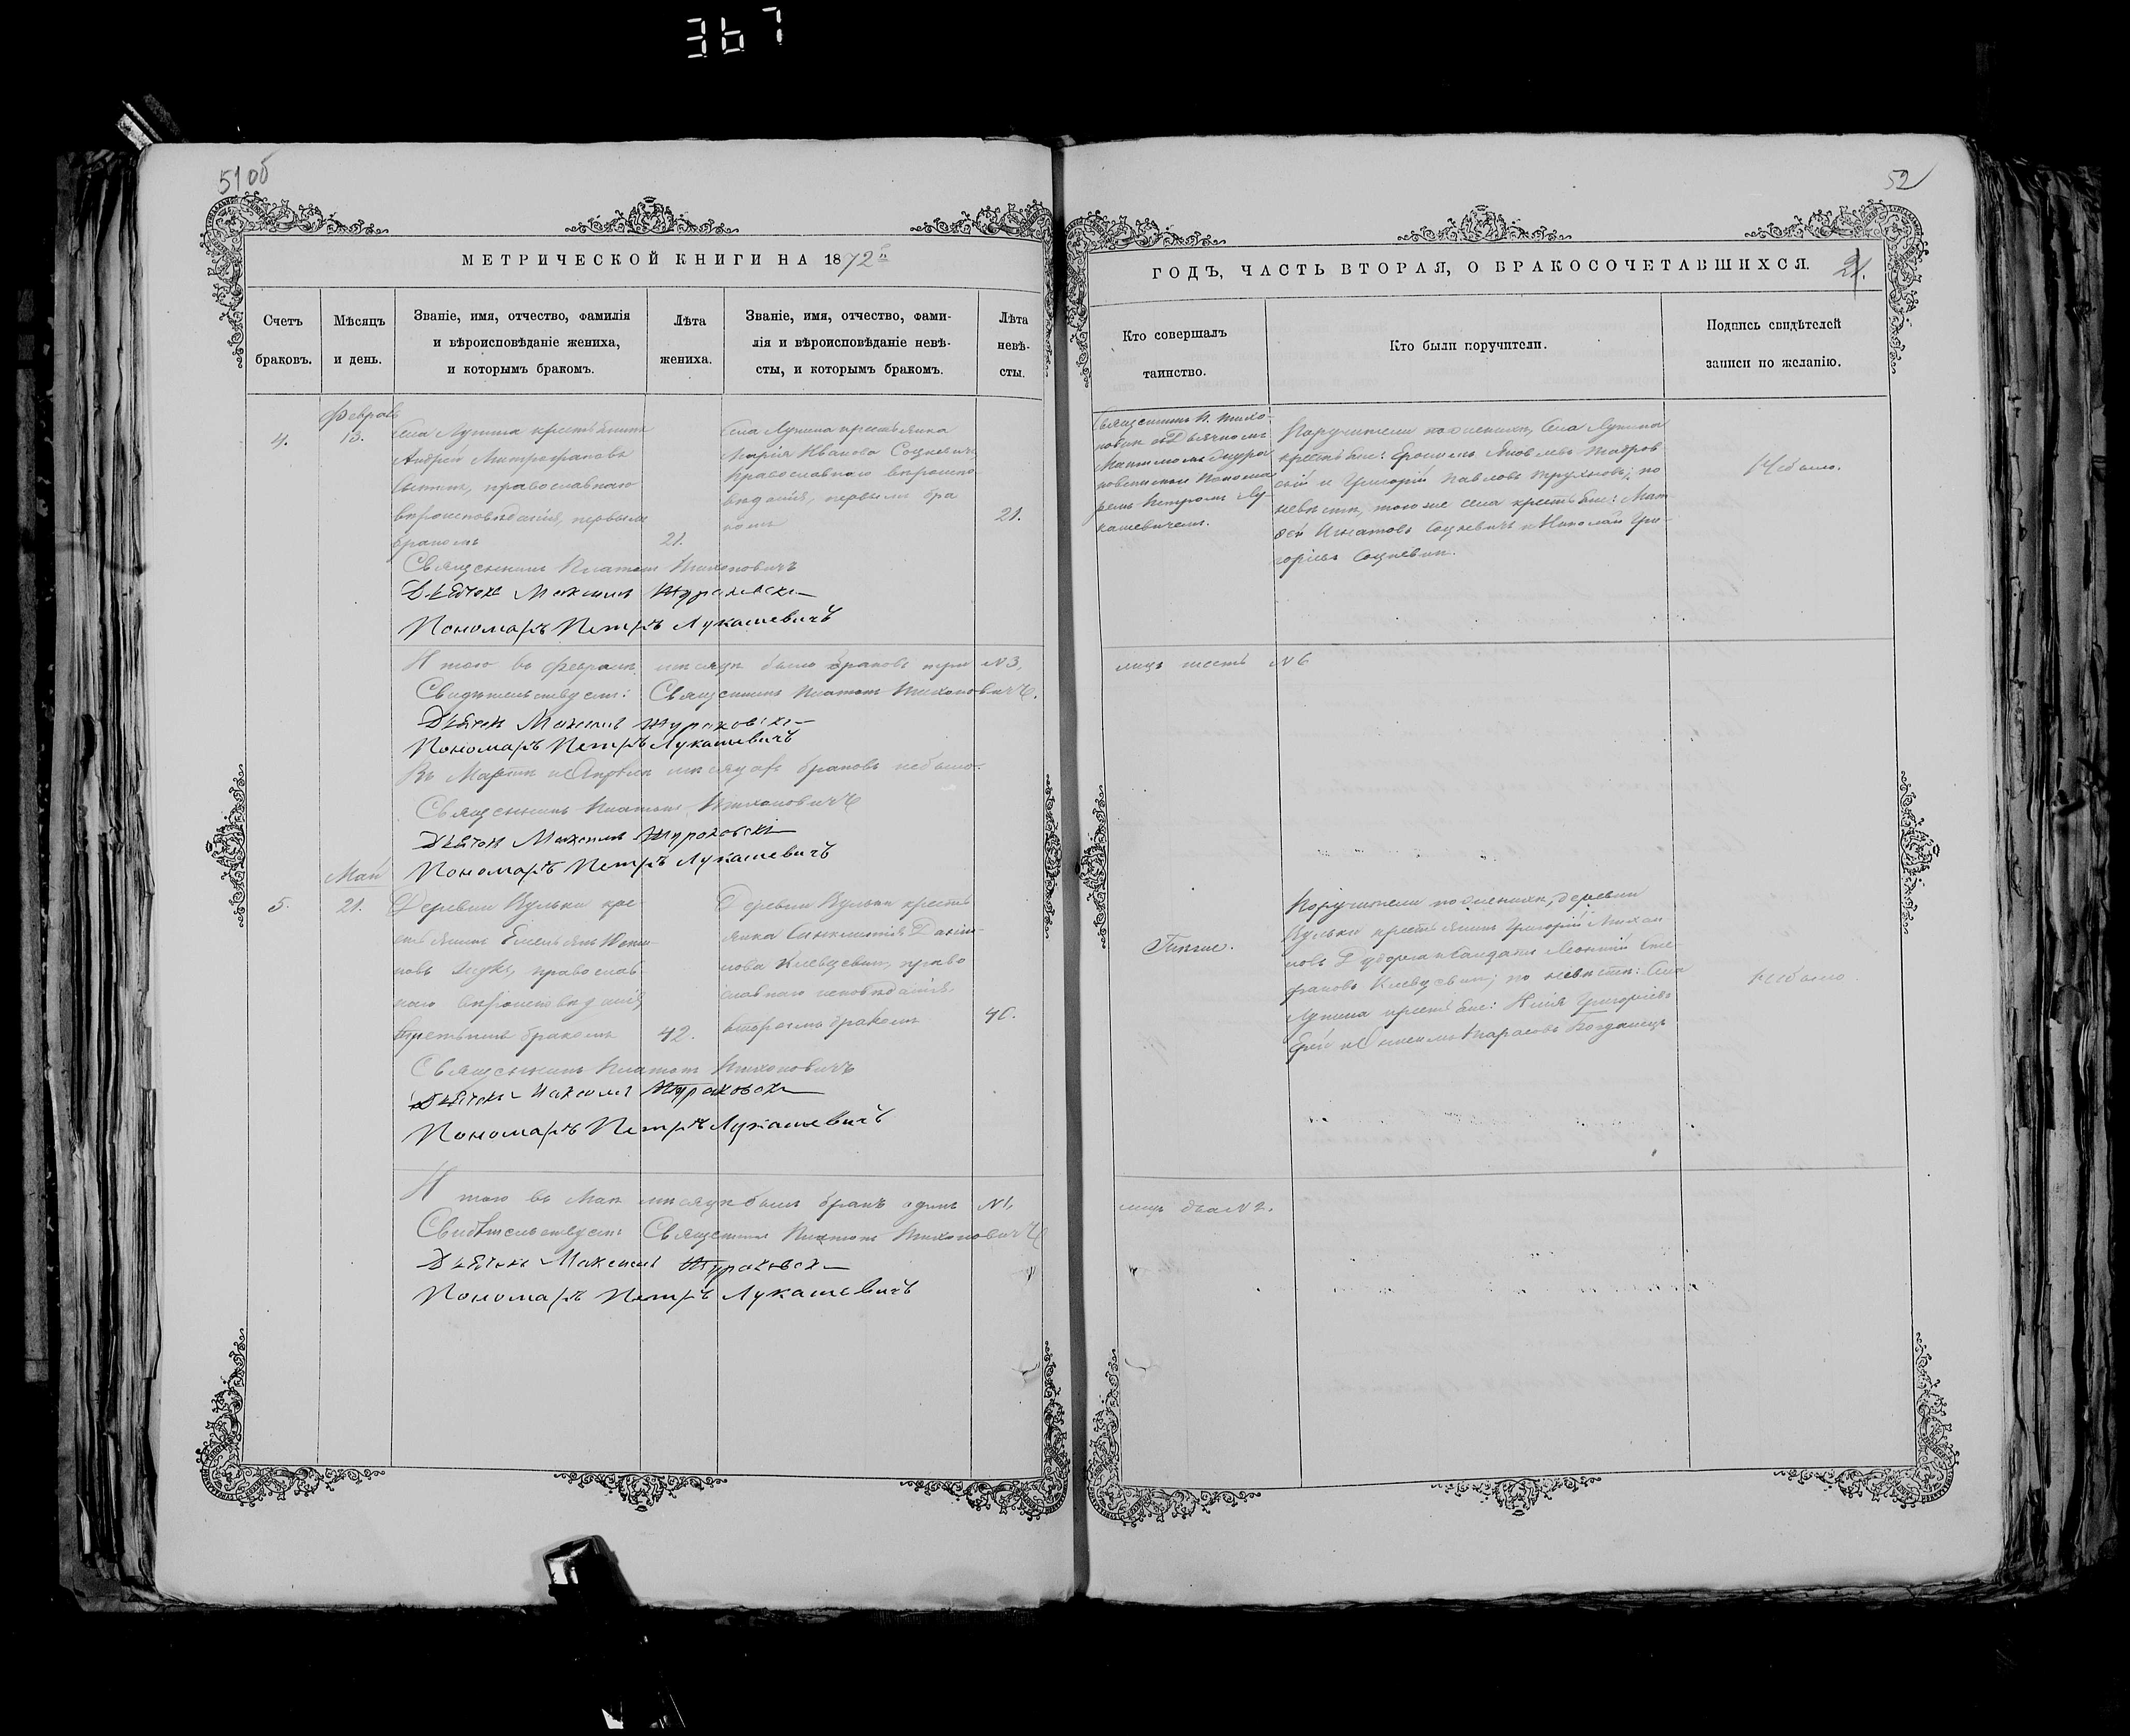 367
51 об
52
МЕТРИЧЕСКОЙ КНИГИ НА 1872й
ГОДЪ, ЧАСТЬ ВТОРАЯ, О БРАКОСОЧЕТАВШИХСЯ. 21.
Счетъ браковъ.
Мѣсяцъ и день.
Званіе, имя, отчество, фамилія
и вѣроисповѣданіе жениха,
и которымъ бракомъ.
Лѣта
жениха.
Званіе, имя, отчество, фами-
лія и вѣроисповѣданіе невѣ-
сты, и которымъ бракомъ.
Лѣта
невѣ-
сты.
Кто совершалъ
таинство.
Кто были поручители.
Подпись свидѣтелей
записи по желанію.
Февраль
4.
13.
Села Лунина крестьянинъ
Андрей Митрофановъ
православнаго
вѣроисповѣданія, первымъ
бракомъ
21.
Села Лунина крестьянка
Марія Иванова Соцкевичъ
православнаго вѣроиспо-
вѣданія, первымъ бра
комъ
21.
Священникъ П. Тихо-
новичъ съ Дьячкомъ
Максимомъ Жура
ковскимъ и Понома
ремъ Петромъ Лу-
кашевичемъ.
Поручители по женихѣ, Села Лунина
крестьяне: Яковлевъ
и Григорій Павловъ по
невѣстѣ, того же села крестьяне: Мат
ѳей Игнатовъ Соцкевичъ и Николай Гри-
горіевъ Соцкевич.
Не было.
Священникъ Платонъ Тихоновичъ
Дьячокъ Максимъ Жураковскі
Пономарь Петръ Лукашевичъ
И того въ Февралѣ мѣсяцѣ было браковъ три №3,
лицъ шесть №6
Свидѣтельствуемъ: Священникъ Платонъ Тихоновичъ.
Дьячокъ Максимъ Жураковскі
Пономарь Петръ Лукашевичъ
Въ Мартѣ и Апрѣлѣ мѣсяцахъ браковъ не было.
Священникъ Платонъ Тихоновичъ
Дьячокъ Максимъ Жураковскі
Пономарь Петръ Лукашевичъ
Май
5.
21.
Деревни Вульки кре-
стьянинъ Емельянъ
православ-
наго вѣроисповѣданія,
третьимъ бракомъ
42.
Деревни Вульки кресть
янка Синклитія Даніи-
лова Клевцевич, право
славнаго исповѣданія,
вторымъ бракомъ
40.
Тѣже.
Поручители по женихѣ, деревни
Вульки крестьянинъ Григорій Михаи
ловъ и Солдатъ Леонтій Сте-
фановъ Клевцевич; по невѣстѣ: Села
Лунина крестьяне: Илія Григоріевъ
Тарасовъ Богданецъ
Не было
Священникъ Платонъ Тихоновичъ
Дьячокъ Максимъ Жураковскі
Пономарь Петръ Лукашевичъ
И того въ Маѣ мѣсяцѣ былъ бракъ одинъ №1,
лицъ два №2.
Свидѣтельствуемъ Священникъ Платонъ Тихоновичъ
Дьячокъ Максимъ Жураковскі
Пономарь Петръ Лукашевичъ